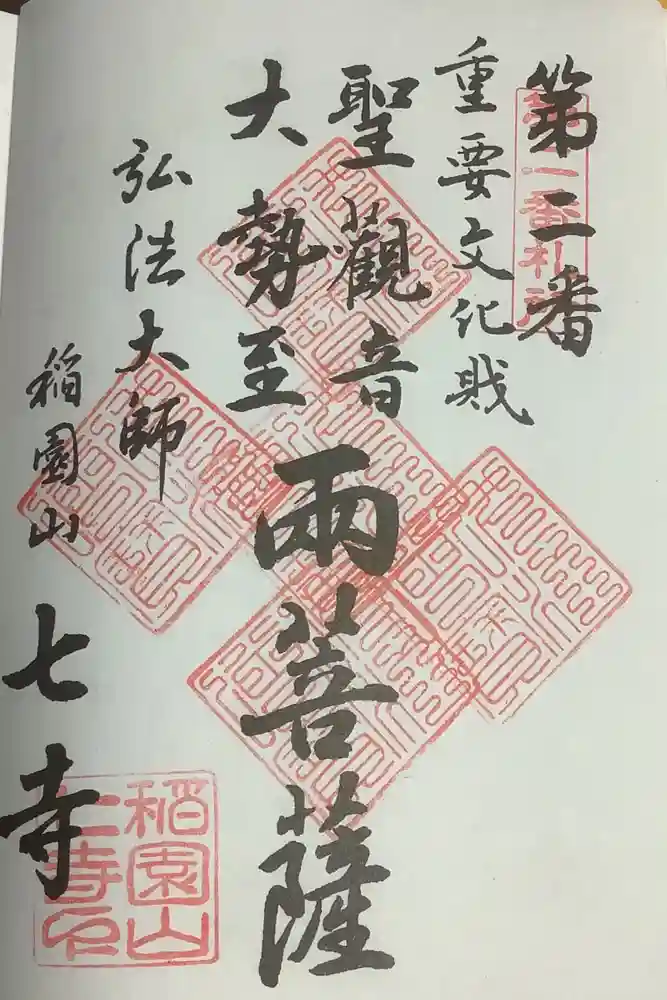 第二番
重要文化財
聖觀音
大勢至
両菩薩
弘法大師
稲園山
七寺
稲園山
七寺印